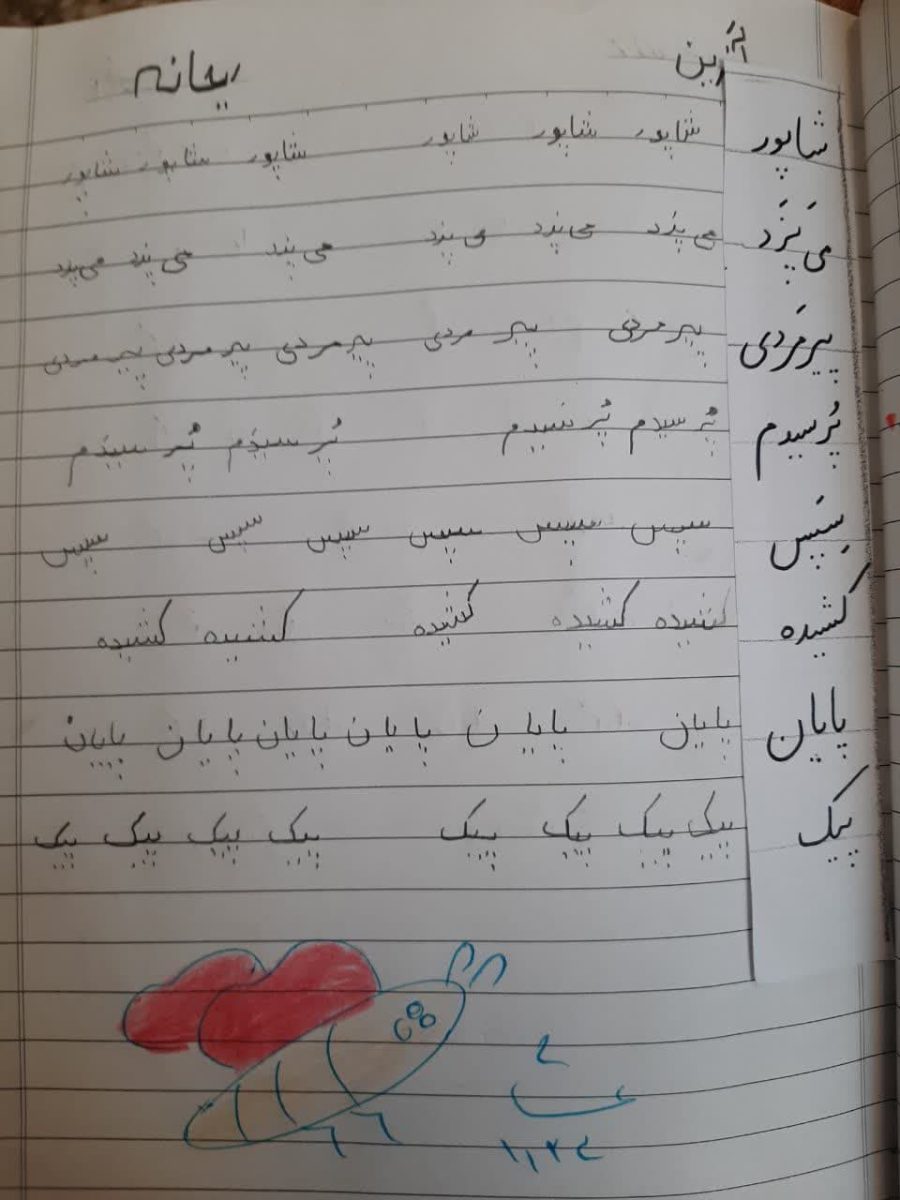 ریحانه
شاپور شاپور شاپور شاپور شاپور شاپور شاپور
می پَزَد می پزد می پزد می پزد می پزد می پزد می پزد
پیرمَردی پیرمردی پیرمردی پیرمردی پیرمردی پیرمردی
پُرسیدم پُرسیدم پُرسیدم پُرسیدم پُرسیدم
سِپَس سپس سپس سپس سپس سپس سپس
کشیده کشیده کشیده کشیده کشیده کشیده
پایان پایان پایان پایان پایان پایان پایان
پیک پیک پیک پیک پیک پیک پیک پیک پیک